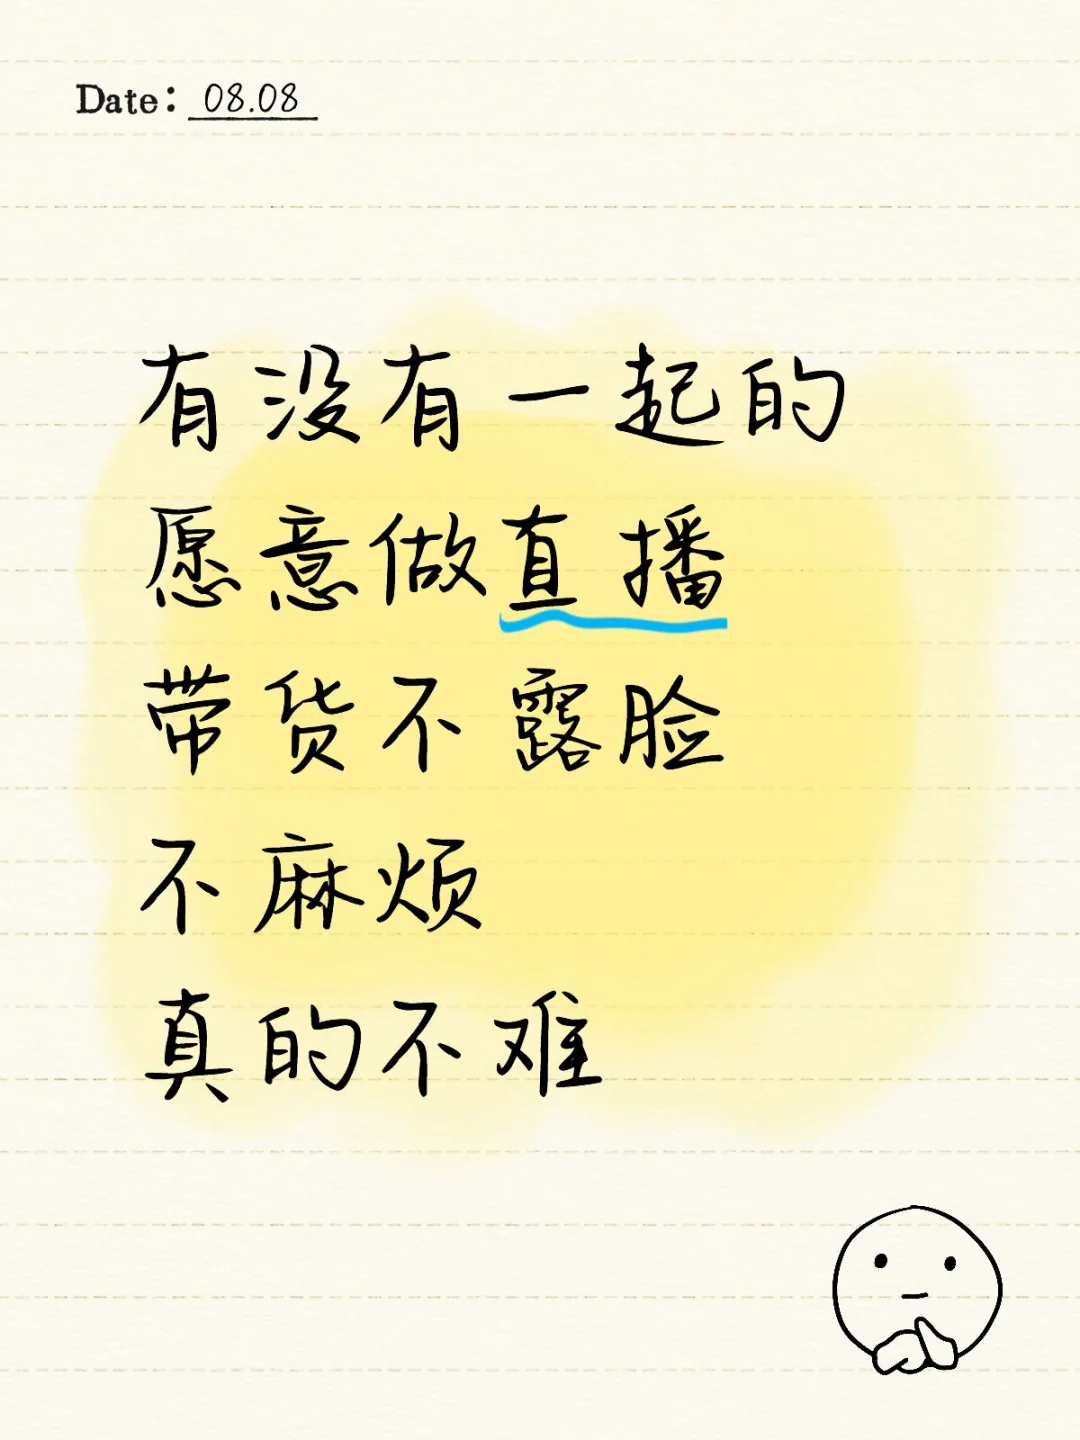 Date: 08.08
有没有一起的
愿意做直播
带货不露脸
不麻烦
真的不难